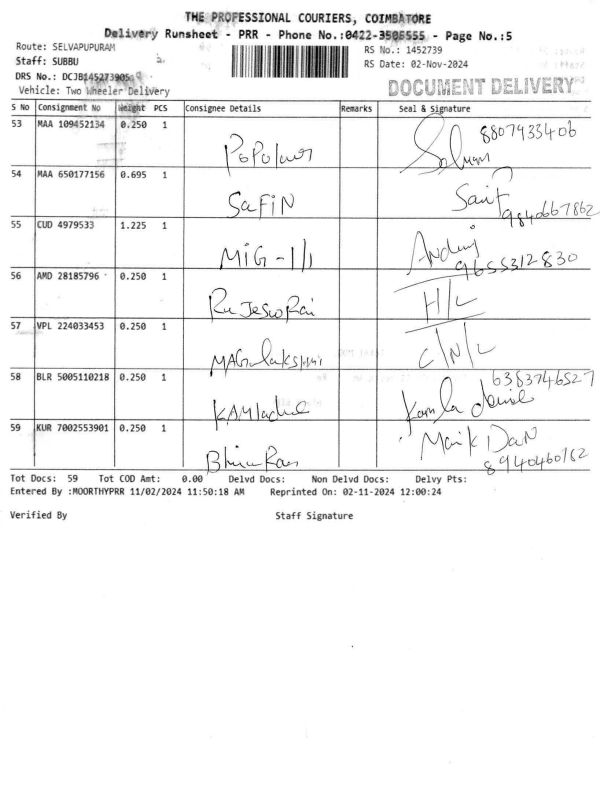 THE PROFESSIONAL COURIERS, COIMBATORE
Delivery Runsheet - PRR - Phone No.:0422-3506555 - Page No.:5
Route: SELVAPUPURAM
RS No.: 1452739
Staff: SUBBU
RS Date: 02-Nov-2024
DRS No.: DCJB1452739059
Vehicle: Two Wheeler Delivery
DOCUMENT DELIVERY
S No Consignment No Weight PCS Consignee Details Remarks Seal & Signature
53 MAA 109452134 0.250 1 Popular Salman 8807933406
54 MAA 650177156 0.695 1 SaFiN Saif 9840667862
55 CUD 4979533 1.225 1 MIG - III 9655312830
56 AMD 28185796 0.250 1 H/L
57 VPL 224033453 0.250 1 C/N/L
58 BLR 5005110218 0.250 1 Kamla 6383746527
59 KUR 7002553901 0.250 1 8940460162
Tot Docs: 59 Tot COD Amt: 0.00 Delvd Docs: Non Delvd Docs: Delvy Pts:
Entered By :MOORTHYPRR 11/02/2024 11:50:18 AM Reprinted On: 02-11-2024 12:00:24
Verified By Staff Signature